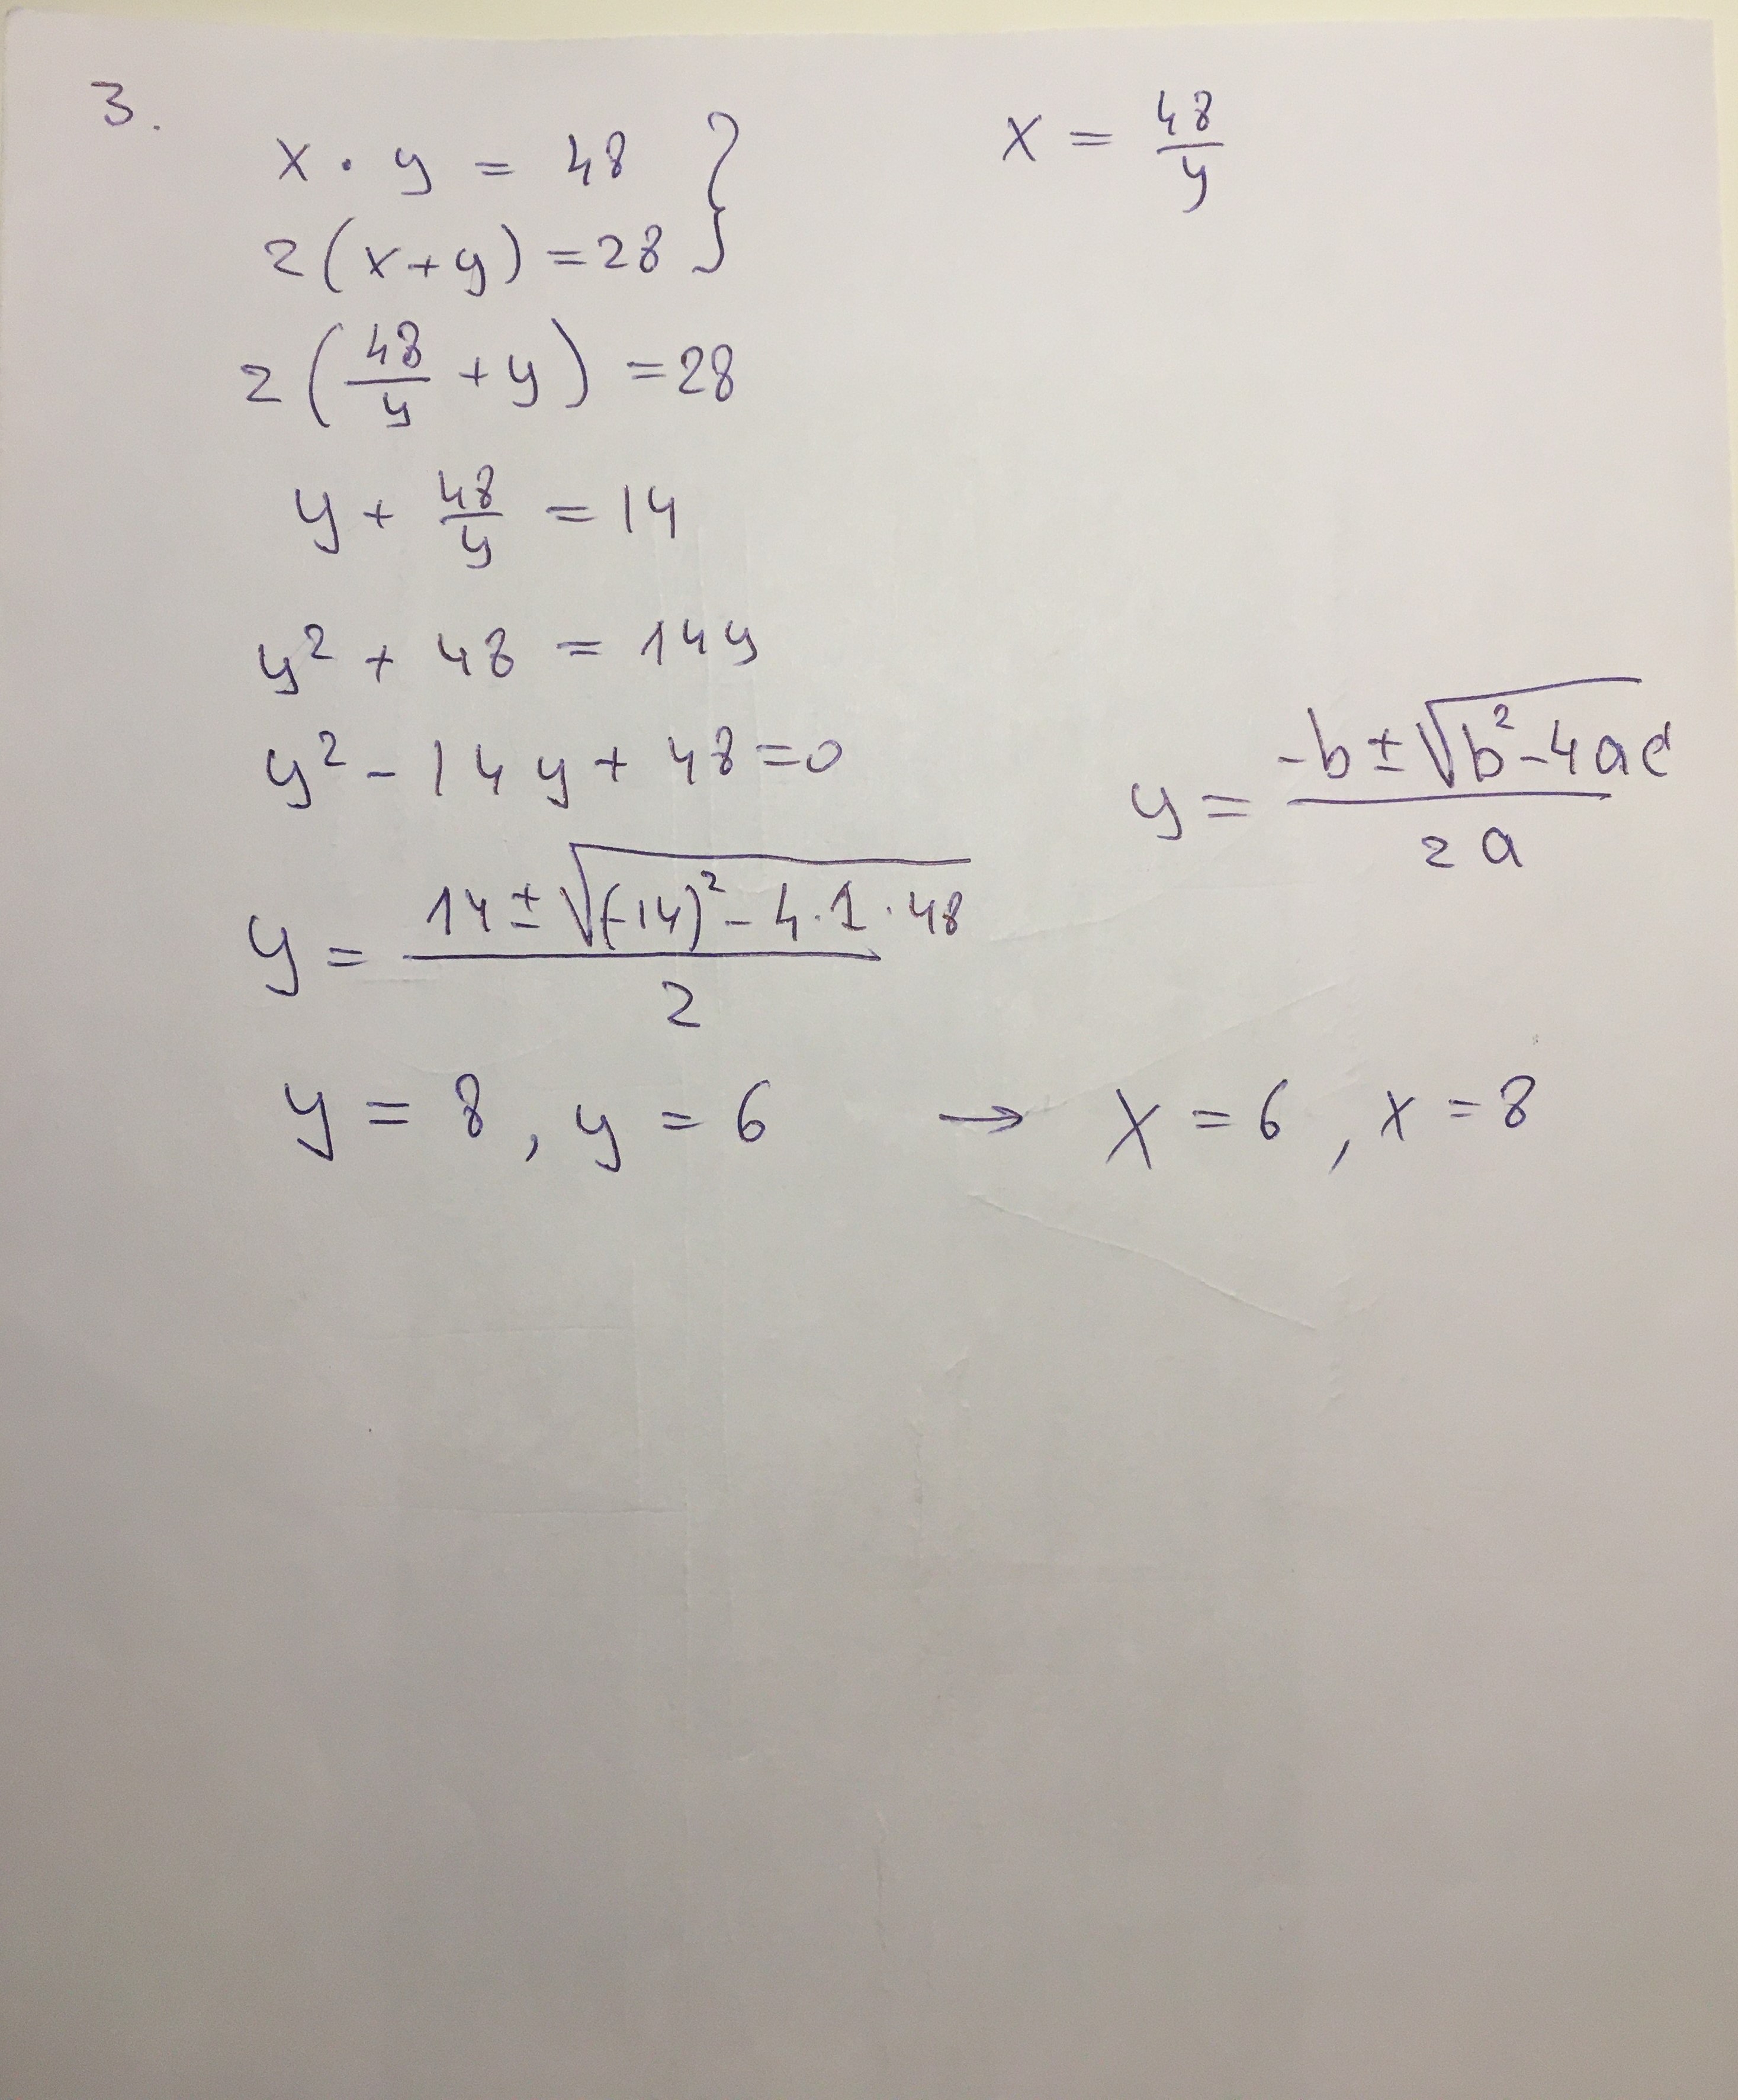 3.
x · y = 48 }
x = 48/y
2(x+y) = 28
2(48/y + y) = 28
y + 48/y = 14
y² + 48 = 14y
y² - 14y + 48 = 0
y = (-b ± √(b² - 4ac))/2a
y = (14 ± √((-14)² - 4·1·48))/2
y = 8, y = 6 → x = 6, x = 8